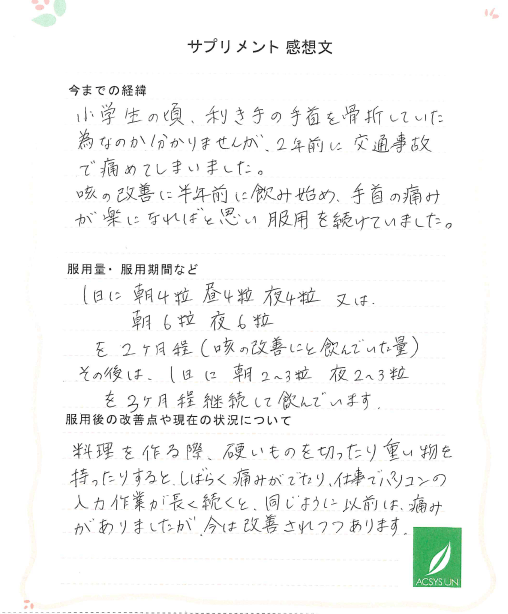 サプリメント 感想文
今までの経緯
小学生の頃、利き手の手首を骨折していた
為なのか分かりませんが、2年前に交通事故
で痛めてしまいました。
咳の改善に半年前に飲み始め、手首の痛み
が楽になればと思い服用を続けていました。
服用量・服用期間など
1日に 朝4粒 昼4粒 夜4粒 又は、
朝6粒 夜6粒
を 2ヶ月程(咳の改善にと飲んでいた量)
その後は、1日に 朝2~3粒 夜2~3粒
を3ヶ月程継続して飲んでいます。
服用後の改善点や現在の状況について
料理を作る際、硬いものを切ったり重い物を
持ったりすると、しばらく痛みがでたり、仕事でパソコンの
入力作業が長く続くと、同じように以前は、痛み
がありましたが、今は改善されつつあります。
ACSYS UN